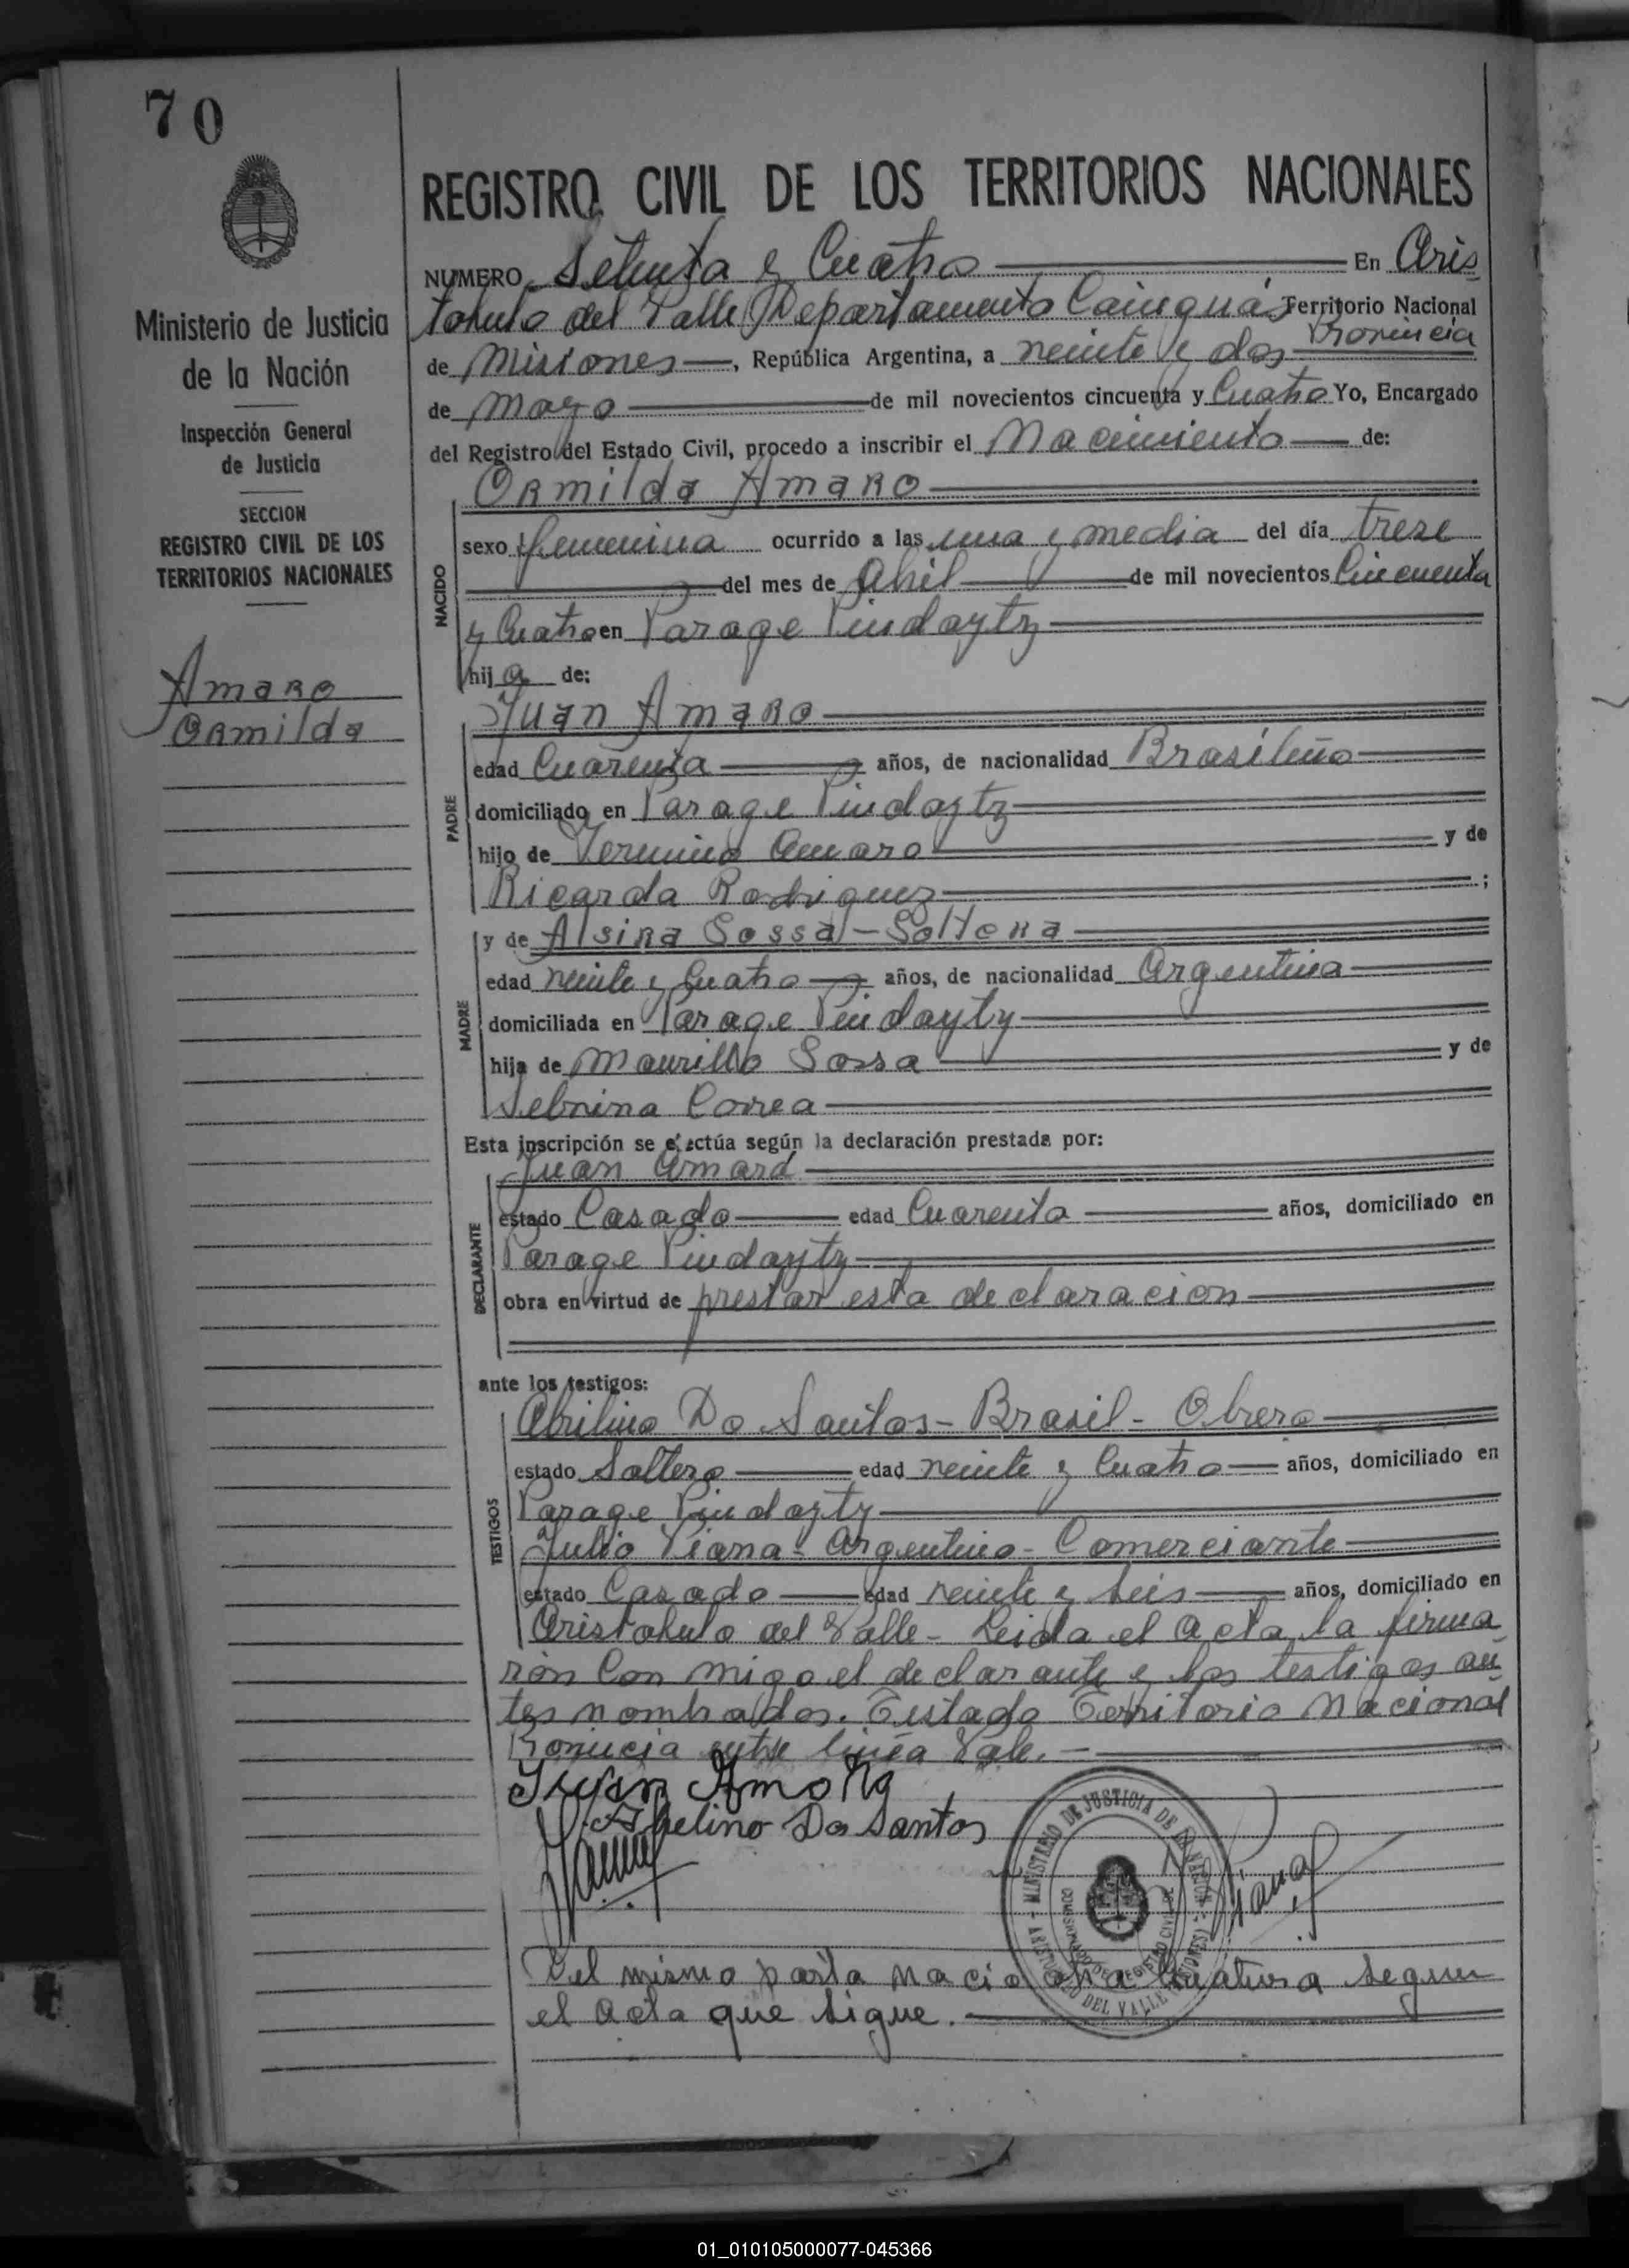 70
REGISTRO CIVIL DE LOS TERRITORIOS NACIONALES
NUMERO Setenta y Cuatro En Aris
tobulo del Valle Departamento Cainguás Territorio Nacional
Provincia
de Misiones, República Argentina, a veinte y dos
de Mayo de mil novecientos cincuenta y Cuatro Yo, Encargado
del Registro del Estado Civil, procedo a inscribir el Nacimiento de:
Ministerio de Justicia
de la Nación
Inspección General
de Justicia
SECCION
REGISTRO CIVIL DE LOS
TERRITORIOS NACIONALES
Amaro
Ormilda
NACIDO
Ormilda Amaro
sexo femenina ocurrido a las una y media del día trese
del mes de Abril de mil novecientos Cincuenta
y Cuatro en Parage Pindayty
hija de:
PADRE
Juan Amaro
edad Cuarenta años, de nacionalidad Brasileño
domiciliado en Parage Pindayty
hijo de Amaro y de
Ricarda Rodriguez;
MADRE
y de Alsira Sossa - Soltera
edad veinte y Cuatro años, de nacionalidad Argentina
domiciliada en Parage Pindayty
hija de Maurilio Sossa y de
Correa
Esta inscripción se efectúa según la declaración prestada por:
DECLARANTE
Juan Amaro
estado Casado edad Cuarenta años, domiciliado en
Parage Pindayty
obra en virtud de prestar esta declaracion
ante los testigos:
TESTIGOS
Abilino Do Santos - Brasil - Obrero
estado Soltero edad veinte y Cuatro años, domiciliado en
Parage Pindayty
Julio Viana - Argentino - Comerciante
estado Casado edad veinte y seis años, domiciliado en
Aristobulo del Valle - Leida el Acta la firma
ron Con migo el declarante y los testigos an
tes nombrados. Testado Territorio Nacional
Provincia entre linea Vale.
Juan Amaro
Abelino Do Santos
Viana
MINISTERIO DE JUSTICIA DE LA NACION
ARISTOBULO DEL VALLE (MISIONES)
Del mismo parto nacio otra Criatura segun
el Acta que sigue.
01_010105000077-045366